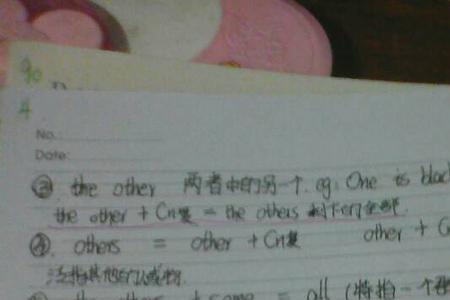 90
4
No.:
Date:
③ the other 两者中的另一个. eg: One is blac
the other + Cn复 = the others 剩下的全部.
④ others = other + Cn复 other + C
泛指其他的人或物.
the others + some = all (特指一个